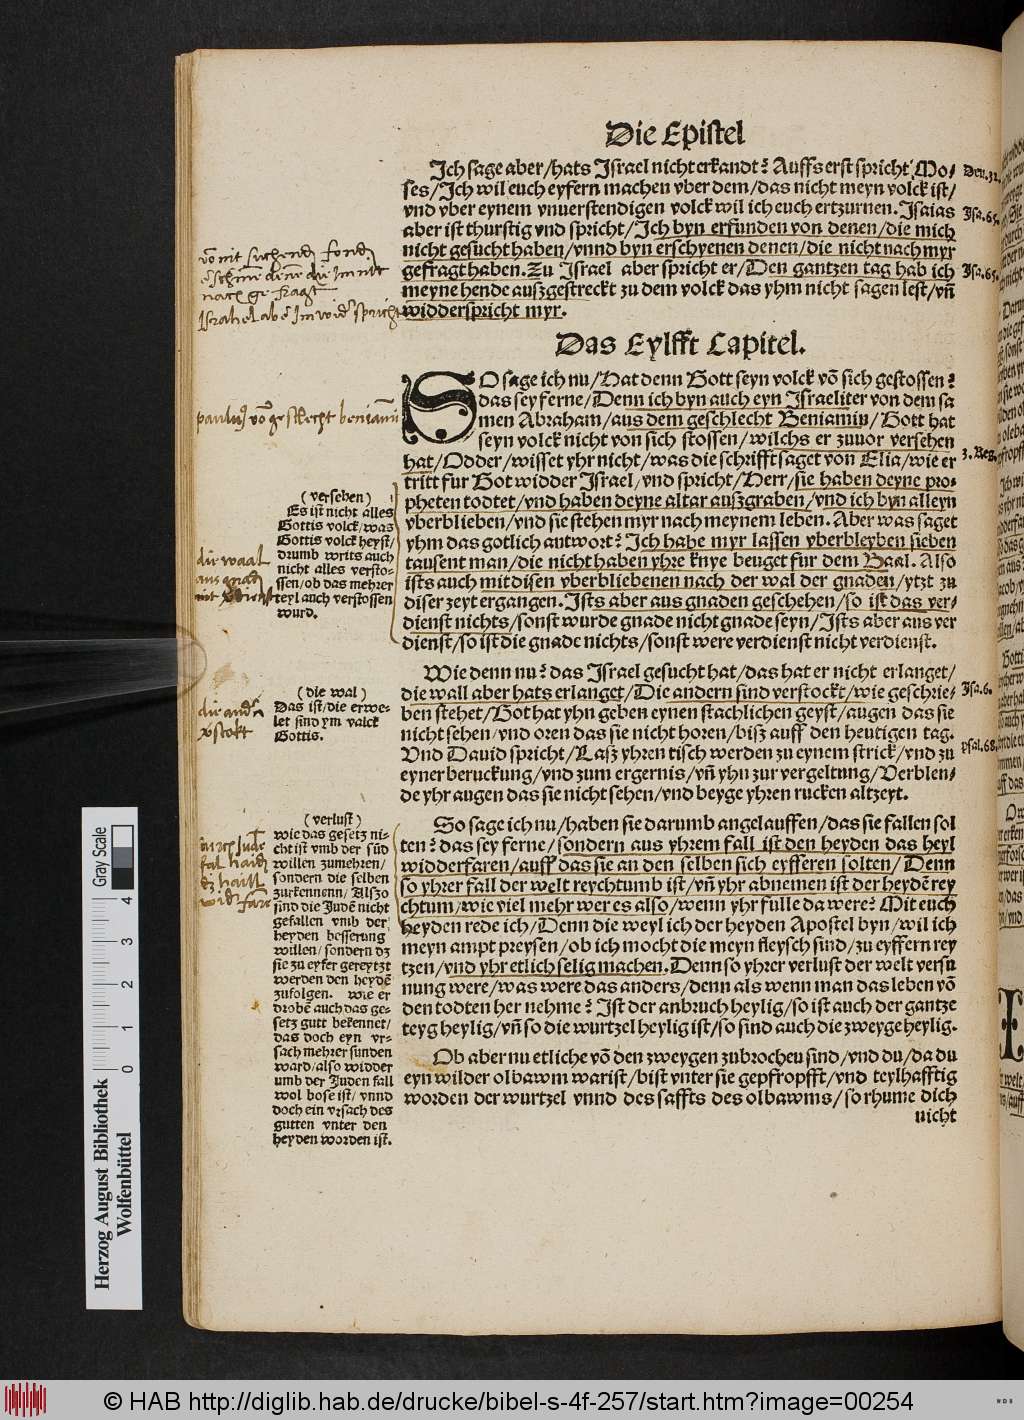 Die Epistel
Ich sage aber/hats Israel nicht erkandt? Auffs erst spricht Mo-
ses/Ich wil euch eyfern machen vber dem/das nicht meyn volck ist/
vnd vber eynem vnuerstendigen volck wil ich euch ertzurnen. Isaias
aber ist thurstig vnd spricht/Ich byn erfunden von denen/die mich
nicht gesucht haben/vnnd byn erschyenen denen/die nicht nach myr
gefragt haben. Zu Israel aber spricht er/Den gantzen tag hab ich
meyne hende auszgestreckt zu dem volck das yhm nicht sagen lest/vñ
widderspricht myr.
Deu. 32.
Isa. 65.
Isa. 65.
nach gefragt
Das Eylfft Capitel.
SO sage ich nu/Hat denn Gott seyn volck võ sich gestossen?
das sey ferne/Denn ich byn auch eyn Israeliter von dem sa
men Abraham/aus dem geschlecht Beniamin/Gott hat
seyn volck nicht von sich stossen/wilchs er zuuor versehen
hat/Odder/wisset yhr nicht/was die schrifft saget von Elia/wie er
tritt fur Got widder Israel/vnd spricht/Herr/sie haben deyne pro-
pheten todtet/vnd haben deyne altar auszgraben/vnd ich byn alleyn
vberblieben/vnd sie stehen myr nach meynem leben. Aber was saget
yhm das gotlich antwort? Ich habe myr lassen vberbleyben sieben
tausent man/die nicht haben yhre knye beuget fur dem Baal. Also
ists auch mit disen vberbliebenen nach der wal der gnaden/ytzt zu
diser zeyt ergangen. Ists aber aus gnaden geschehen/so ist das ver-
dienst nichts/sonst wurde gnade nicht gnade seyn/Ists aber aus ver
dienst/so ist die gnade nichts/sonst were verdienst nicht verdienst.
3. Reg.
geschlecht beniamin
(versehen)
Es ist nicht alles
Gottis volck/was
Gottis volck heyst/
drumb wirts auch
nicht alles versto-
ssen/ob das mehrer
teyl auch verstossen
wurd.
die waal
aus gnad
Wie denn nu? das Israel gesucht hat/das hat er nicht erlanget/
die wall aber hats erlanget/Die andern sind verstockt/wie geschrie-
ben stehet/Got hat yhn geben eynen stachlichen geyst/augen das sie
nicht sehen/vnd oren das sie nicht horen/bisz auff den heutigen tag.
Vnd Dauid spricht/Lasz yhren tisch werden zu eynem strick/vnd zu
eyner beruckung/vnd zum ergernis/vñ yhn zur vergeltung/Verblen-
de yhr augen das sie nicht sehen/vnd beyge yhren rucken altzeyt.
Isa. 6.
psal. 68.
(die wal)
Das ist/die erwe-
let sind ym valck
Gottis.
So sage ich nu/haben sie darumb angelauffen/das sie fallen sol
ten? das sey ferne/sondern aus yhrem fall ist den heyden das heyl
widderfaren/auff das sie an den selben sich eyfferen solten/Denn
so yhrer fall der welt reychtumb ist/vñ yhr abnemen ist der heydẽ rey
chtum/wie viel mehr wer es also/wenn yhr fulle da were? Mit euch
heyden rede ich/Denn die weyl ich der heyden Apostel byn/wil ich
meyn ampt preysen/ob ich mocht die meyn fleysch sind/zu eyffern rey
tzen/vnd yhr etlich selig machen. Denn so yhrer verlust der welt versu
nung were/was were das anders/denn als wenn man das leben võ
den todten her nehme? Ist der anbruch heylig/so ist auch der gantze
teyg heylig/vñ so die wurtzel heylig ist/so sind auch die zweyge heylig.
(verlust)
wie das gesetz ni-
cht ist vmb der sũd
willen zumehren/
sondern die selben
zurkennenn/Alszo
sind die Judẽ nicht
gefallen vmb der
heyden besserung
willen/sondern dz
sie zu eyfer gereytzt
werden den heydẽ
zufolgen. wie er
drobẽ auch das ge-
setz gutt bekennet/
das doch eyn vr-
sach mehrer sunden
ward/also widder
umb der Juden fall
wol bose ist/vnnd
doch ein vrsach des
gutten vnter den
heyden worden ist.
Ob aber nu etliche võ den zweygen zubrochen sind/vnd du/da du
eyn wilder olbawm warist/bist vnter sie gepfropfft/vnd teylhafftig
worden der wurtzel vnnd des saffts des olbawms/so rhume dich
nicht
Gray Scale
0 1 2 3 4
Herzog August Bibliothek
Wolfenbüttel
© HAB http://diglib.hab.de/drucke/bibel-s-4f-257/start.htm?image=00254